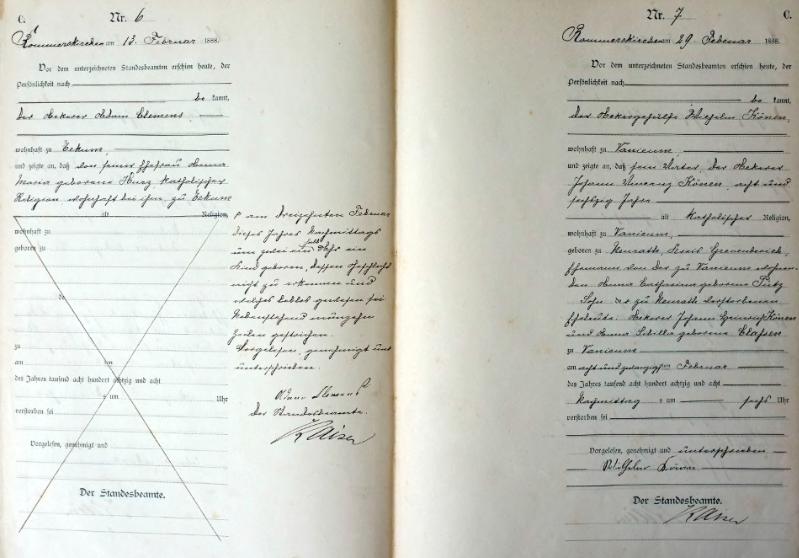 C.
Nr. 6
Rommerskirchen am 13. Februar 1888.
Vor dem unterzeichneten Standesbeamten erschien heute, der
Persönlichkeit nach
be kannt,
der Ackerer Adam Clemens
wohnhaft zu Eckum
und zeigte an, daß von seiner Ehefrau Anna
Maria geborene katholischer
Religion wohnhaft bei ihm zu Eckum
alt Religion,
wohnhaft zu
geboren zu
de
zu
am ten
des Jahres tausend acht hundert achtzig und acht
um Uhr
verstorben sei
Vorgelesen, genehmigt und
Der Standesbeamte.
am dreizehnten Februar
dieses Jahres Nachmittags
um zwei ein halb Uhr ein
Kind geboren, dessen Geschlecht
nicht zu erkennen und
welches todtes gewesen sei
Nebenstehend
Zeilen gestrichen.
Vorgelesen, genehmigt und
unterschrieben.
Adam Clemens
Der Standesbeamte.
Kaiser
Nr. 7
C.
Rommerskirchen am 29. Februar 1888.
Vor dem unterzeichneten Standesbeamten erschien heute, der
Persönlichkeit nach
be kannt,
der Ackergehülfe Wilhelm Könen
wohnhaft zu Vanicum
und zeigte an, daß sein Vater, der Ackerer
Johann Könen acht und
Jahre
alt katholischer Religion,
wohnhaft zu Vanicum,
geboren zu Neurath, Kreis Grevenbroich
Ehemann von der zu Vanicum
den Anna Catharina geborene Pütz
Sohn der zu Neurath verstorbenen
Eheleute: Ackerer Johann Heinrich Könen
und Anna Sibilla geborene Clasen
zu Vanicum
am acht und zwanzigsten Februar
des Jahres tausend acht hundert achtzig und acht
Nachmittag s um sechs Uhr
verstorben sei
Vorgelesen, genehmigt und unterschrieben
Wilhelm Könen
Der Standesbeamte.
Kaiser